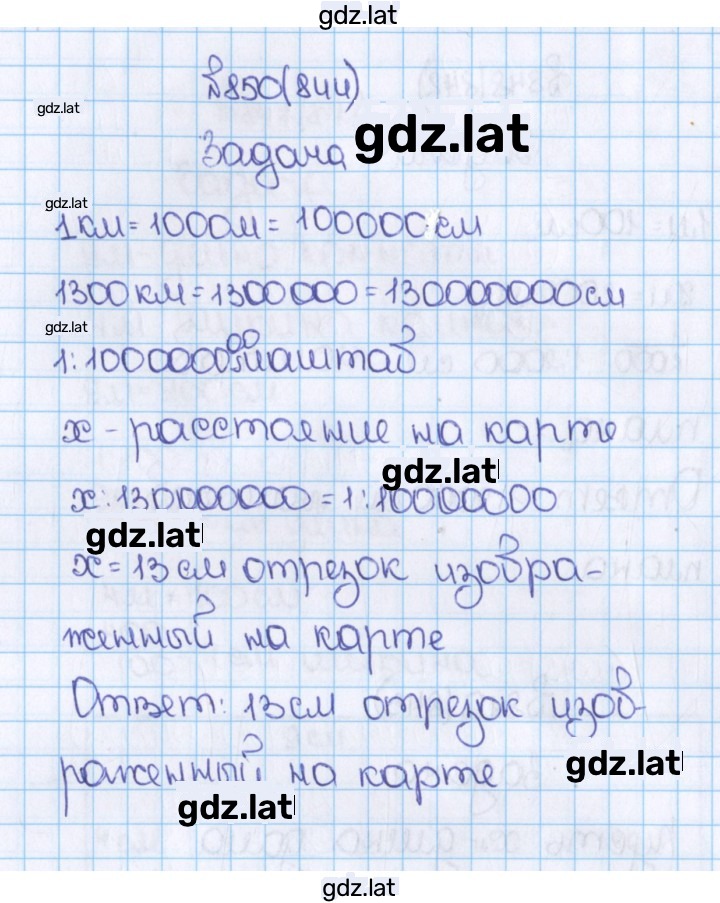 gdz.lat
№850(844)
gdz.lat
Задача gdz.lat
gdz.lat
1км=1000м=100000см
1300км=1300000=130000000см
gdz.lat
1:10000000 масштаб
x - расстояние на карте
gdz.lat
x:130000000=1:10000000
gdz.lat
x=13см отрезок изобра-
женный на карте
Ответ: 13см отрезок изоб-
раженный на карте
gdz.lat
gdz.lat
gdz.lat